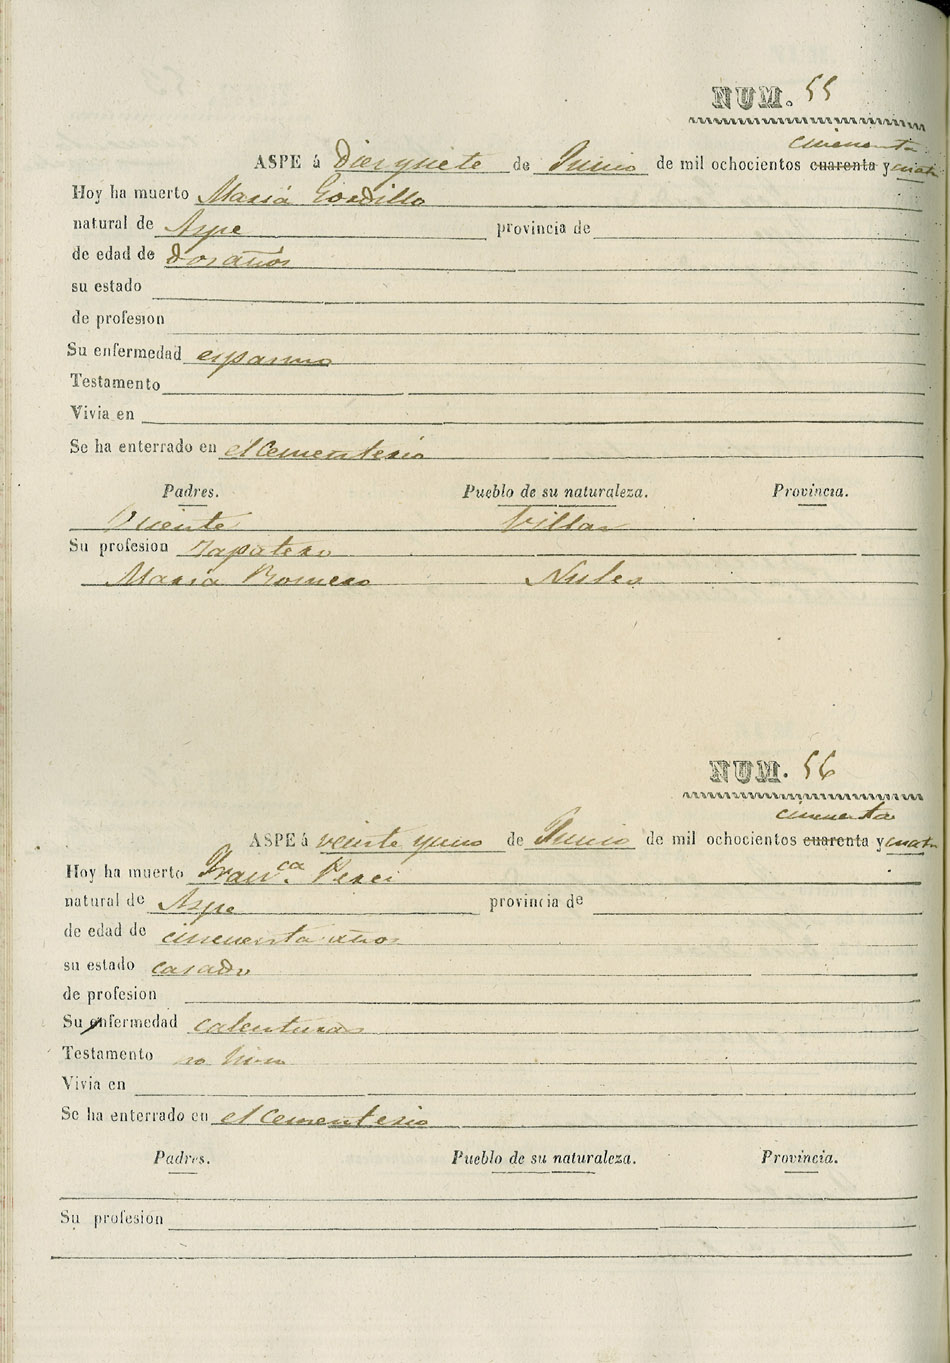 NUM. 55
cincuenta
ASPE á Diez y siete de Junio de mil ochocientos cuarenta y cuatro
Hoy ha muerto Maria Gordillo
natural de Aspe provincia de
de edad de dos años
su estado
de profesion
Su enfermedad espasmo
Testamento
Vivia en
Se ha enterrado en el Cementerio
Padres. Pueblo de su naturaleza. Provincia.
Vicente
Su profesion Zapatero
Maria Romero Nules
NUM. 56
cincuenta
ASPE á veinte y uno de Junio de mil ochocientos cuarenta y cuatro
Hoy ha muerto Fran.ca
natural de Aspe provincia de
de edad de cincuenta años
su estado casada
de profesion
Su enfermedad calenturas
Testamento no
Vivia en
Se ha enterrado en el Cementerio
Padres. Pueblo de su naturaleza. Provincia.
Su profesion